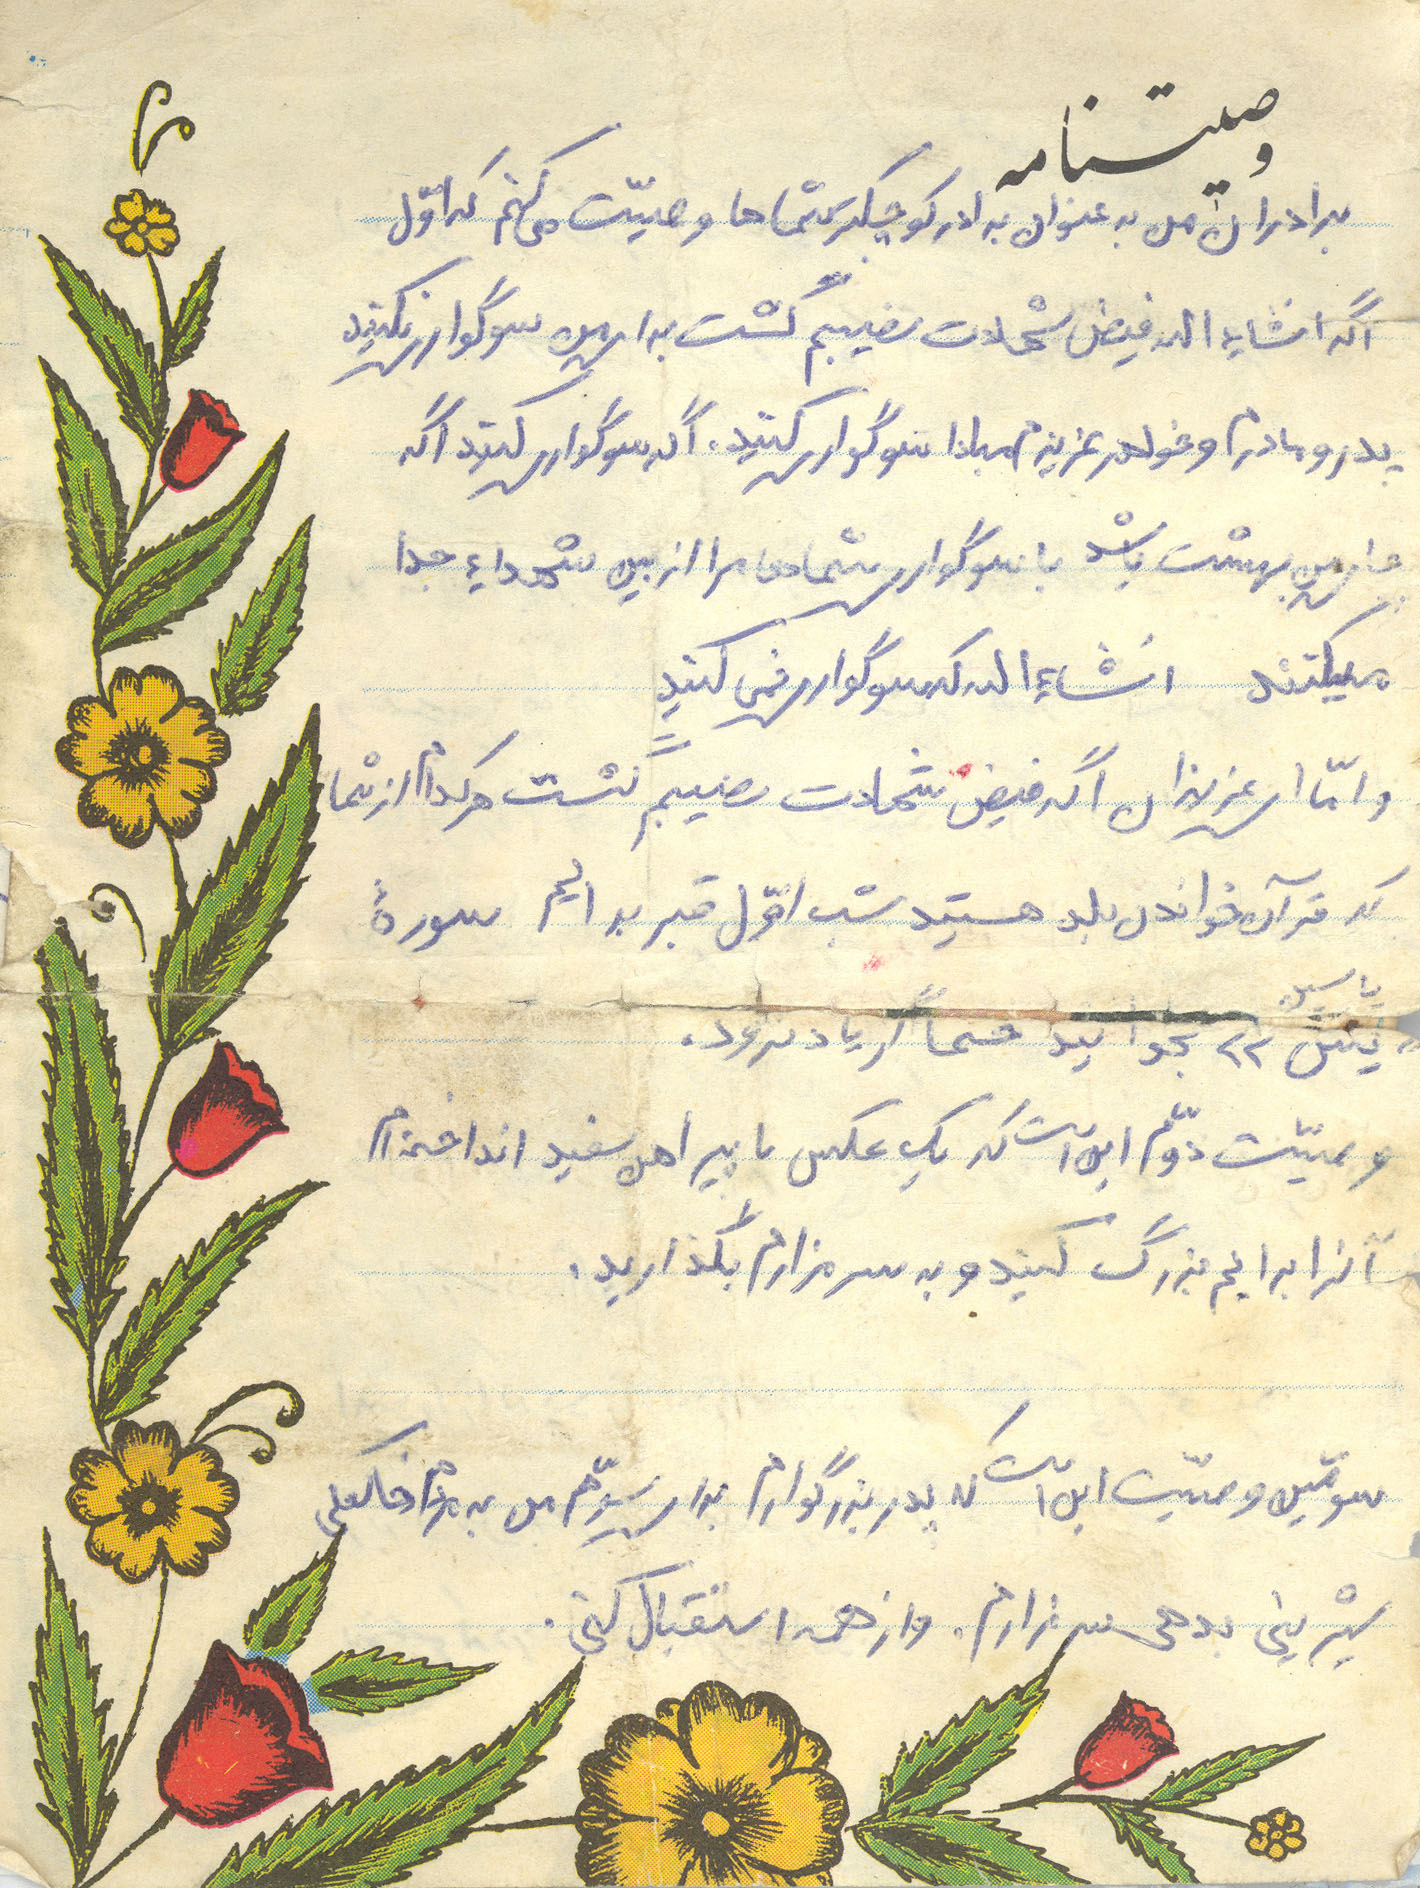 وصیتنامه
برادران من به عنوان برادر کوچکتر شماها وصیّت می‌کنم که اوّل
اگه انشاءالله فیض شهادت نصیبم گشت برای من سوگواری نکنید
پدر و مادرم و خواهر عزیزم مبادا سوگواری کنید. اگه سوگواری کنید اگه
جای من بهشت باشد با سوگواری شماها مرا از بین شهداء جدا
میکنند انشاءالله که سوگواری نمی کنید
و امّا ای عزیزان اگه فیض شهادت نصیبم گشت هر کدام از شما
که قرآن خواندن بلد هستید شب اوّل قبر برایم سورهٔ
یاسین
یٰس بخوانید حتماً از یاد نرود.
وصیّت دوّم این است که یک عکس با پیراهن سفید انداخته‌ام
آنرا برایم بزرگ کنید و به سر مزارم بگذارید.
سوّمین وصیّت این است که پدر بزرگوارم برای سوّم من به مردم
شیرینی بدهی سر مزارم. و از همه استقبال کنی.